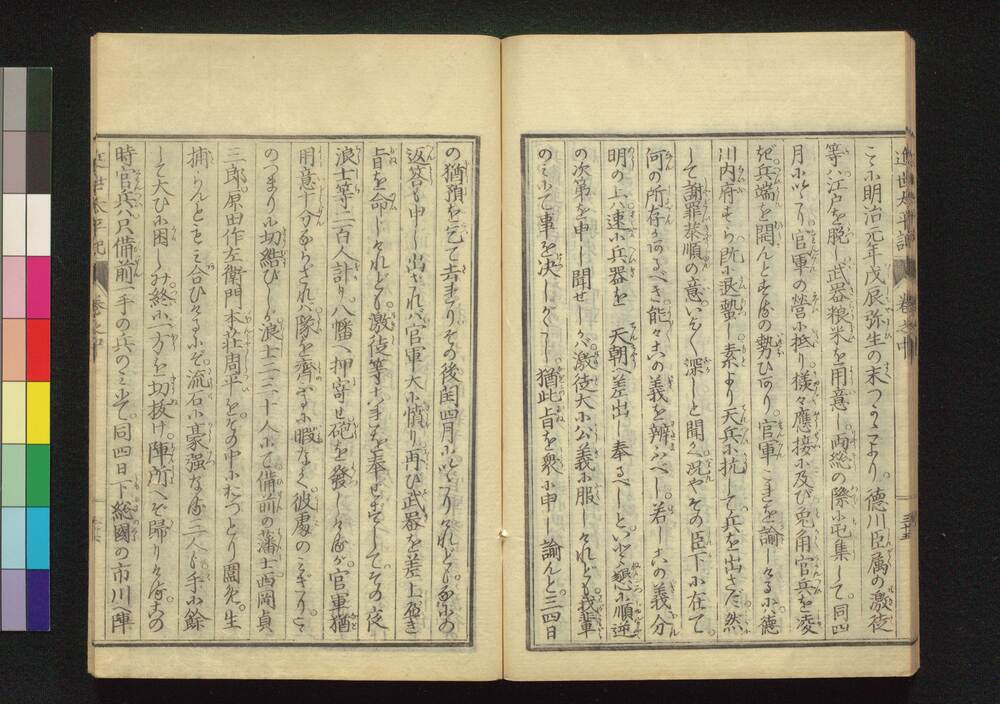 近世太平記 巻之中
こゝに明治元年戊辰弥生の末つかたより。徳川臣属の激徒
等ハ江戸を脱し武器粮米を用意し。両総の際に屯集して。同四
月に以たり。官軍の営に抵り。様々應接に及び兎角官兵を凌
ぎ。兵端を開んとする の勢ひあり。官軍これを諭しけるに。徳
川内府すら既に退蟄し素より天兵に抗して兵を出さだ。然
して謝罪恭順の意いよ〳〵深しと聞く。况やその臣下に在て。
何の所存かあるべき。能々この義を辨ふべし。若しこの義分
明の上ハ。速に兵器を 天朝へ差出し奉るべしと。いと懇に順逆
の次第を申し聞せしかバ。激徒大に公義に服しけれども。我輩
のミにて事を決しがたし。猶此旨を衆に申し諭んと。三四日
の猶預を乞て去まり。その後閏四月に以たりけれども。 の
返答も申し出ざれバ。官軍大に憤り。再び武器を差上べき
旨を命じけれども。激徒等 を奉ぜずしてその夜
浪士等二百人計り。八幡へ押寄せ砲を發しけるが。官軍猶
用意十分ならざれバ。隊を齊ふるに暇なく。彼處のミぎりこゝ
のつまりに切結びしが。浪士二三十人にて備前の藩士西岡貞
三郎。原田作左衛門。本荘周平を。その中におつとり圍ミ。生
捕らんともミ合ひけるにぞ。流石に豪强なる三人も手に餘
して大ひに困しみ。終に一方を切抜け。陣所へぞ歸りける。この
時官兵ハ只備前一手の兵のミにて。同四日下総國の市川へ陣
近世太平記 巻之中